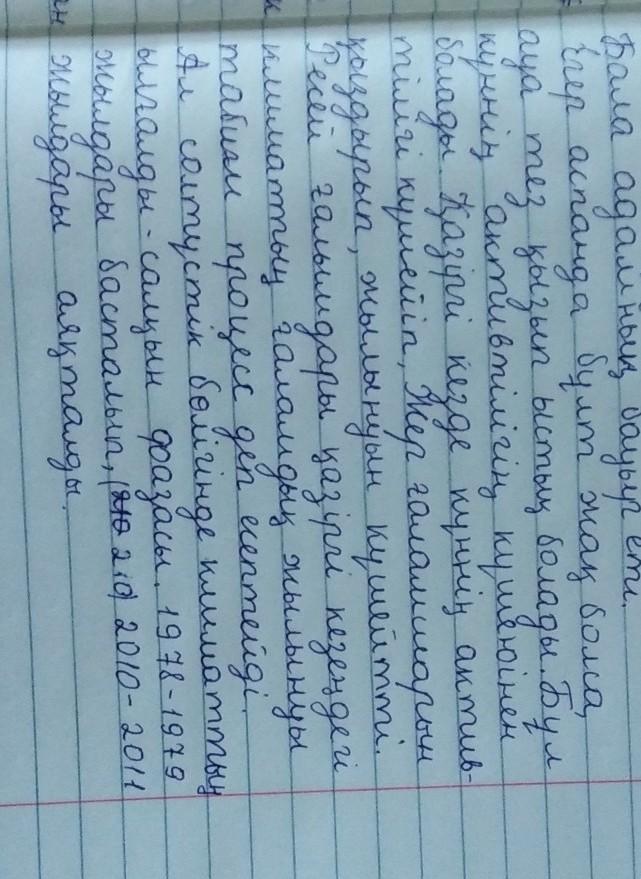 Бала адамның бауыр еті.
Егер аспанда бұлт жақ болса,
ауа тез қызып ыстық болады. Бұл
күннің активтілігің күшеюінен
болады. Қазіргі кезде күннің актив-
тілігі күшейіп, Жер ғаламшарын
қыздырып, жылынуын күшейтті.
Ресей ғалымдары қазіргі кезеңдегі
климаттың ғаламдық жылынуы
табиғи процесс деп есептейді.
Ал солтүстік бөлігінде климаттың
ылғалды-салқын фазасы. 1978-1979
жылдары басталып, 2010-2011
жылдары аяқталды.